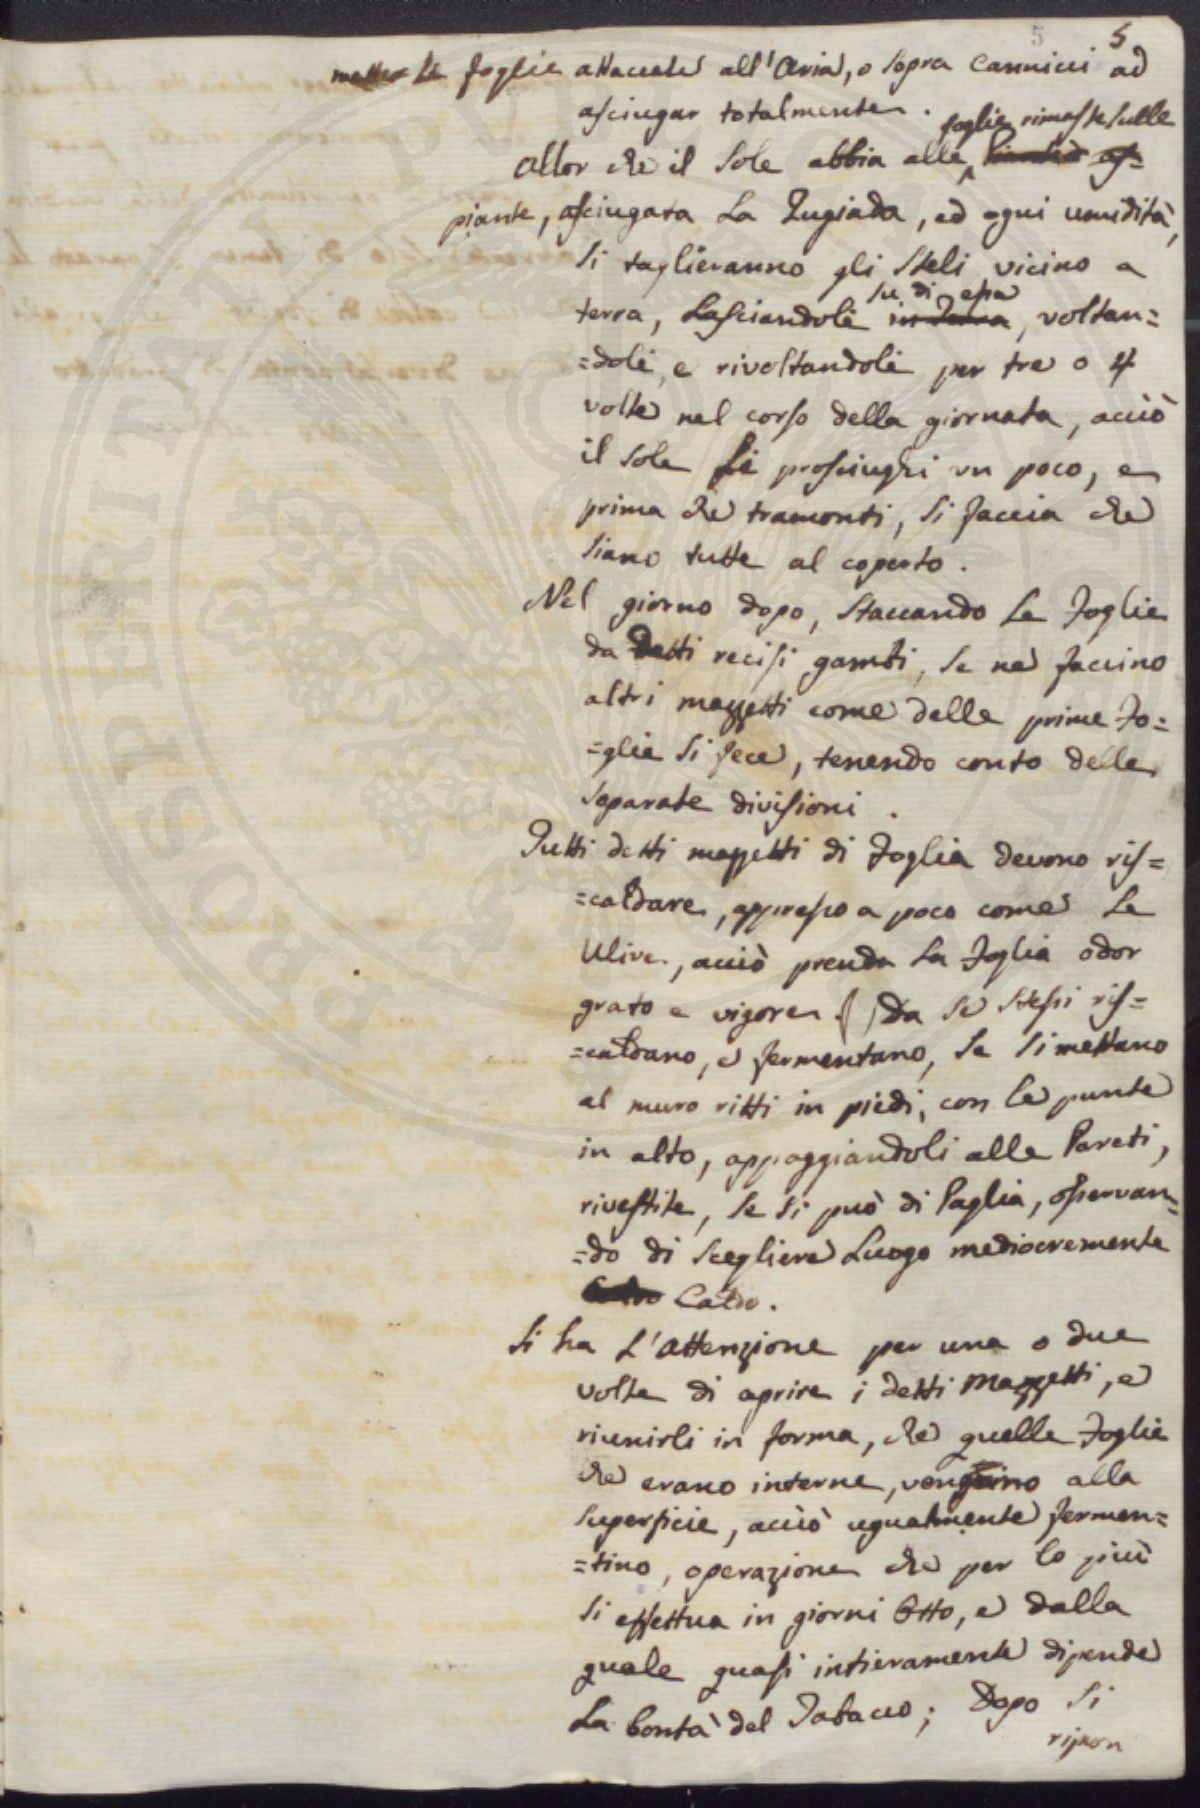 5 5
metter Le foglie attaccate all'Aria, o sopra Cannicci ad
asciugar totalmente. foglie rimaste sulle
Allor che il Sole abbia alle as=
piante, asciugata La Rugiada, ed ogni umidità,
Si taglieranno gli Steli vicino a
su di essa
terra, Lasciandole in Terra, voltan=
=dole, e rivoltandole per tre o 4
volte nel corso della giornata, acciò
il Sole Le prosciughi un poco, e
prima che tramonti, Si faccia che
Siano tutte al coperto.
Nel giorno dopo, Staccando Le Foglie
da Detti recisi gambi, Se ne faccino
altri mazzetti come delle prime Fo=
=glie Si fece, tenendo conto delle
Separate divisioni.
Tutti detti mazzetti di Foglia devono ris=
=caldare, appresso a poco come Le
Ulive, acciò prenda La Foglia odor
grato e vigore. Da Se Stessi ris=
=caldano, e fermentano, Se Si mettano
al muro ritti in piedi, con le punte
in alto, appoggiandoli alle Pareti,
rivestite, Se Si può di Paglia, osservan=
=do di Scegliere Luogo mediocremente
Caldo.
Si ha L'Attenzione per una o due
volte di aprire i detti Mazzetti, e
riunirli in forma, che quelle Foglie
che erano interne, venghino alla
Superficie, acciò ugualmente fermen=
=tino, operazione che per lo più
Si effettua in giorni Otto, e dalla
quale quasi intieramente dipende
La bontà del Tabacco; Dopo Si
ripon
PROSPERITATI PUBLICAE